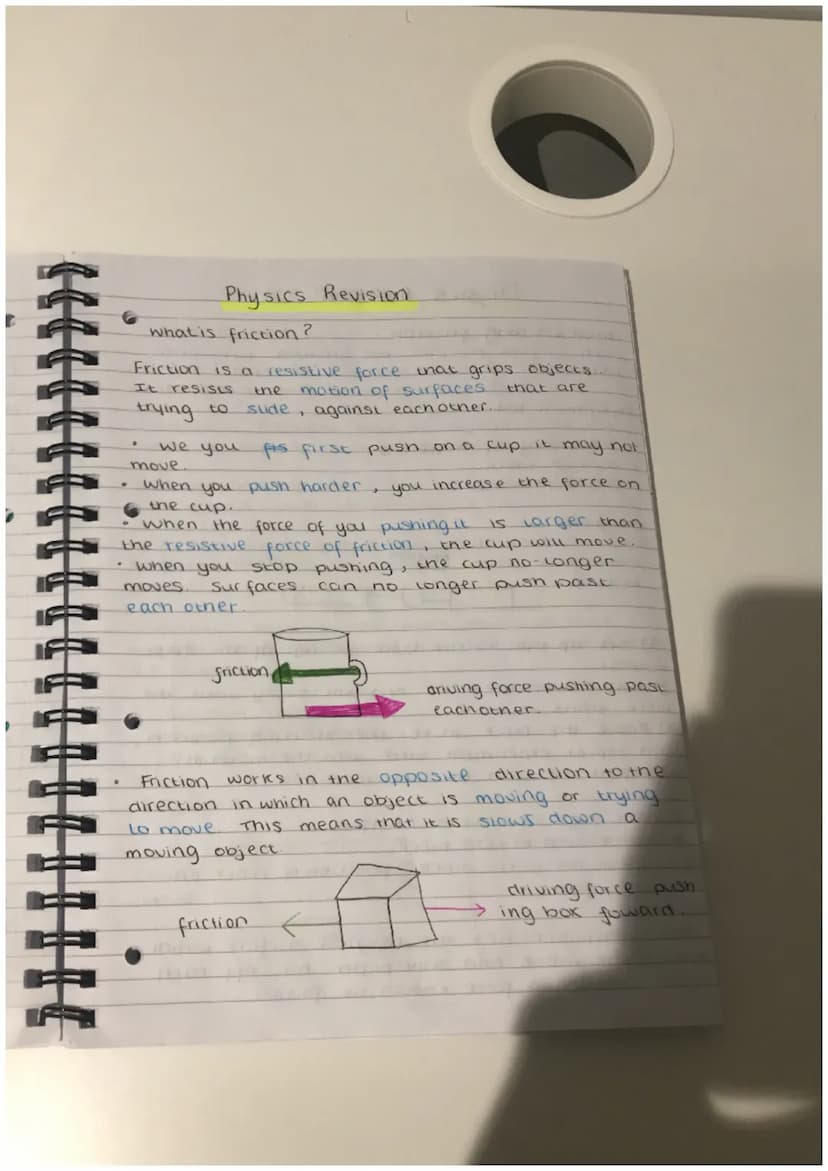 Physics Revision
what is friction?
Friction is a resistive force that grips objects.
It resists the motion of surfaces that are
trying to slide, against each other.
• We you first push on a cup it may not
move.
• When you push harder, you increase the force on
the cup.
• When the force of you pushing it is larger than
the resistive force of friction, the cup will move.
• When you stop pushing, the cup no-longer
moves. Surfaces can no longer push past
each other.
friction
driving force pushing past
each other.
• Friction works in the opposite direction to the
direction in which an object is moving or trying
to move. This means that it is slows down a
moving object.
driving force push
friction
ing box foward.